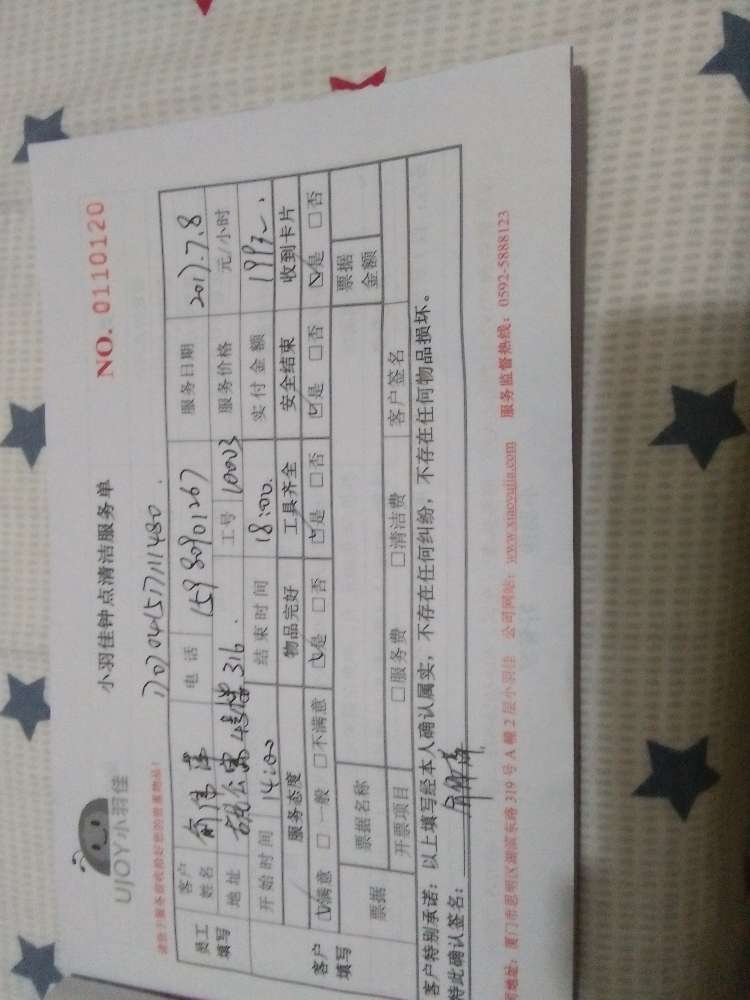 UJOY小羽佳
小羽佳钟点清洁服务单
NO. 0110120
请您于服务前收拾好您的贵重物品!
170704151711480.
员工填写 客户姓名 俞伟 电话 15980901267 服务日期 2017.7.8
地址 公寓4号楼316. 工号 10003 服务价格 元/小时
开始时间 14:00 结束时间 18:00. 实付金额 199元.
客户填写 服务态度 物品完好 工具齐全 安全结束 收到卡片
☑满意 □一般 □不满意 ☑是 □否 ☑是 □否 ☑是 □否 ☑是 □否
票据 票据名称 票据金额
开票项目 □服务费 □清洁费 客户签名
客户特别承诺:以上填写经本人确认属实,不存在任何纠纷,不存在任何物品损坏。
特此确认签名:
司地址:厦门市思明区湖滨东路319号A幢2层小羽佳 公司网站:www.xiaoyujia.com 服务监督热线:0592-5888123